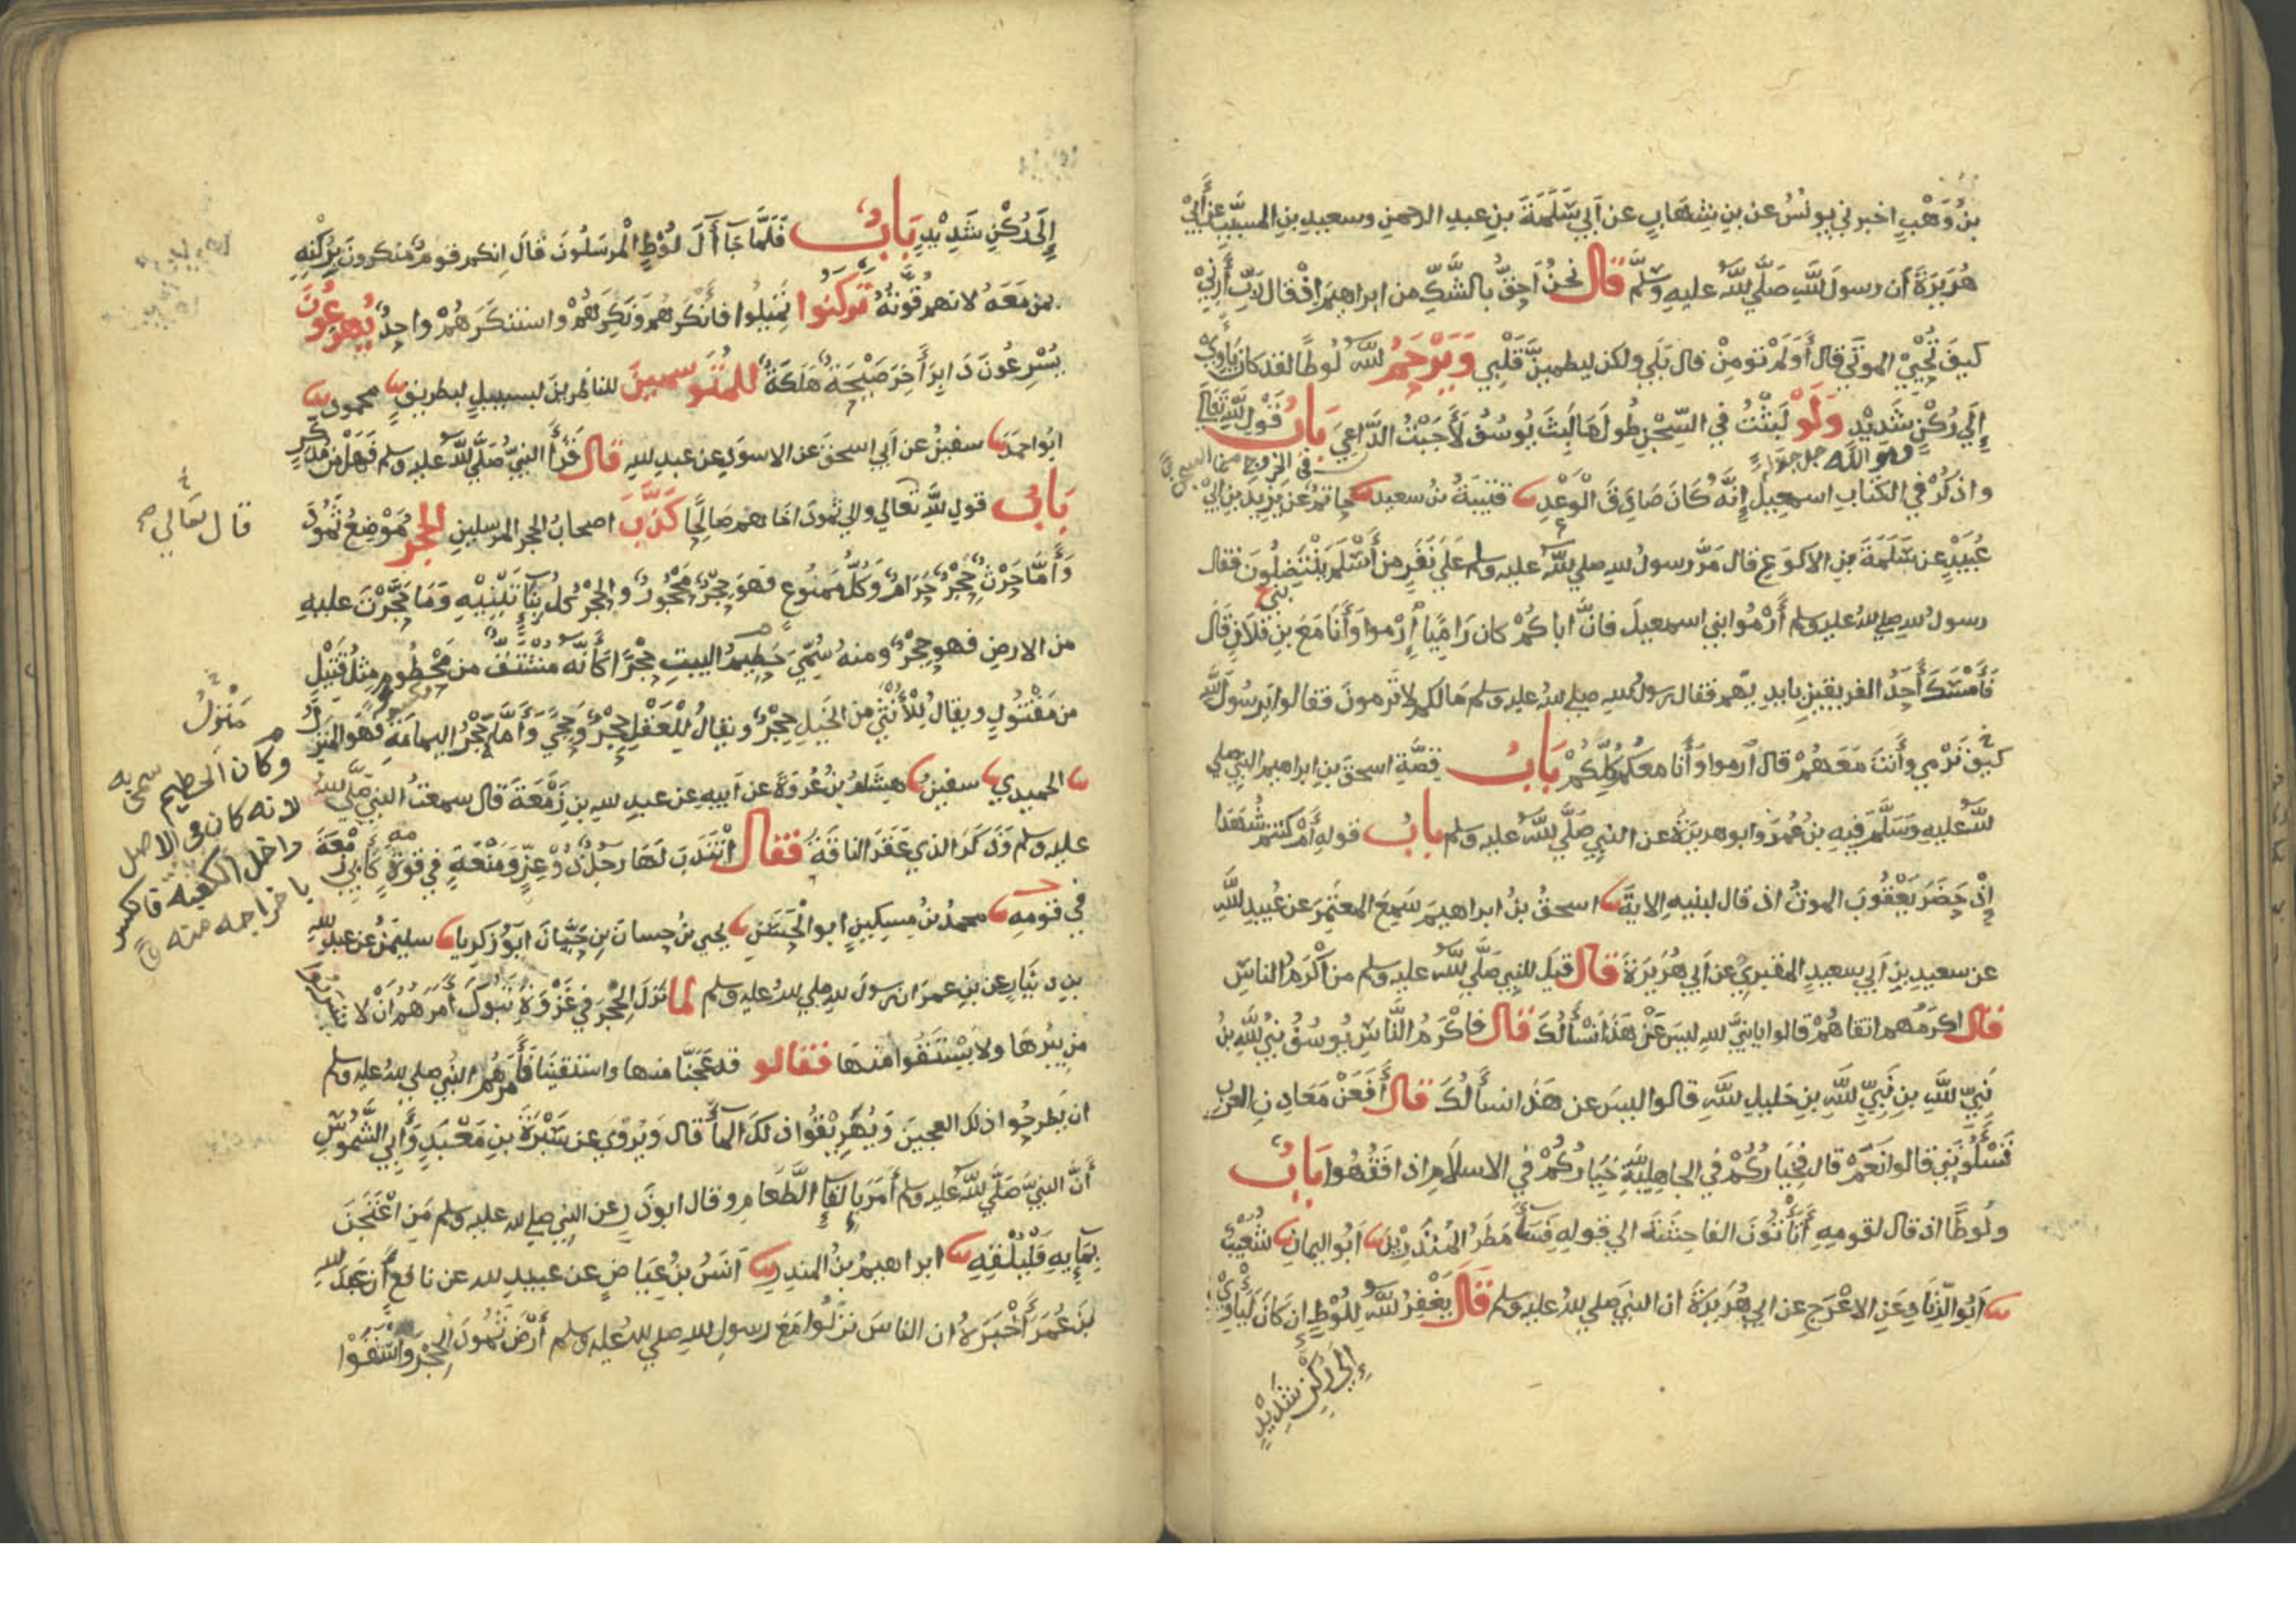 بنُ وَهْبٍ اخبرني يونُسُ عن بنِ شِهَابٍ عن اَبي سَلَمَةَ بنِ عبدِ الرحمنِ وسعيدِ بنِ المسيَّبِ عن أَبي
هُرَيرَةَ ان رسولَ اللَّهِ صَلَّي اللَّهُ عليهِ وسَلَّمَ قال نحنُ اَحَقُّ بالشَّكِّ من ابراهيمَ اِذْ قال رَبِّ أَرِنِي
كيفَ تُحْيِي الموتَي قال أَوَلَمْ تؤمِنْ قال بَلَي ولكن ليطمينَّ قَلْبِي وَيَرْحَمُ اللَّهُ لُوطًا لقد كان يَأْوِي
إِلَي رُكْنٍ شَدِيْدٍ وَلَوْ لَبِثْتُ في السِّجْنِ طُولَ مَا لَبِثَ يُوسُفُ لَأَجَبْتُ الدَّاعِيَ بَابُ قَوْلِ اللَّهِ تَعَالَي
واذكُرْ في الكتابِ اسمعيلَ إِنَّهُ كَانَ صَادِقَ الْوَعْدِ قتيبَةُ بنُ سعيدٍ حاتمٌ عَنْ يَزِيدَ بنِ ابي
عُبَيْدٍ عن سَلَمَةَ بنِ الاكوَعِ قال مَرَّ رسولُ اللهِ صلي اللَّهُ عليه وسلم عَلَي نَفَرٍ مِن أَسْلَمَ يَنْتَضِلُونَ فقال
رسولُ اللهِ صلي اللهُ عليه وسلم أرْمُوا بني اسمعيلَ فانَّ اباكُمْ كان رَامِيًا إرْموا وَأَنَا مَعَ بنِ فُلَانٍ قَال
فَأَمْسَكَ أَحَدُ الفريقينِ بايدِيهم فقال رسولُ الله صلي اللهُ عليه وسلم مَا لكم لا تَرمونَ فقالوا يَرسُولَ اللَّهِ
كيفَ نَرْمي وأَنتَ مَعَهُمْ قال اَرموا وَأَنا معكُم كُلِّكُمْ بَابُ قِصَّةِ اسحقَ بنِ ابراهيمَ النبي صلي
اللَّهُ عليهِ وَسَلَّمَ فيهِ بنُ عُمَرَ وابو هريرَةَ عن النبيِ صَلَّي اللَّهُ عليه وسلم بابُ قولِهِ أَمْ كنتم شُهَدَا
إِذْ حَضَرَ يَعْقُوبَ الموتُ اذ قال لبنيهِ الايةَ اسحقُ بنُ ابراهيمَ سَمِعَ المعتَمِرَ عن عُبيدِ اللَّهِ
عن سعيدِ بنِ اَبي سعيدٍ المقبريِّ عن اَبي هُرَيْرَةَ قال قيلَ للنبيِ صَلَّي اللَّهُ عليه وسلم من اَكْرَمُ الناسِ
قال اكرَمُهم اتقاهُمْ قالوا يا نبيَّ اللهِ ليسَ عَنْ هَذَا نَسْأَلُكَ قال فَاكْرَمُ النَّاسِ يُوسُفُ نبيُّ اللَّهِ بنُ
نَبِيِّ اللَّهِ بنِ نَبِيِّ اللَّهِ بنِ خليلِ اللَّهِ قالوا ليسَ عن هَذا نسأَلُكَ قال أَفَعَنْ مَعَادِنِ العربِ
تَسْأَلُونَنِي قالوا نَعَمْ قال فخِيَارُكُمْ في الجاهِليَّةِ خِيَارُكُمْ في الاسلَامِ اذا فَقُهُوا بَابُ
ولُوطًا اذ قال لقومِهِ أَتَأْتُونَ الفاحِشَةَ الي قولِهِ فَسَاءَ مَطَرُ المُنذَرِيْنَ اَبُو اليمانِ شُعَيْبٌ
اَبُو الزِّنَادِ عَنِ الاعْرَجِ عن ابي هُرَيْرَةَ ان النبيَ صلي اللهُ عليه وسلم قَالَ يَغْفِرُ اللَّهُ لِلُوْطٍ ان كَانَ لَيَاْوِي
إِلَى رُكْنٍ شَدِيْدٍ
إِلَى رُكْنٍ شَدِيْدٍ بَابُ فَلَمَّا جَا أَلَ لُوطٍ الْمرسَلُونَ قَالَ اِنكم قومٌ مُنكرونَ بِرُكْنِهِ
بمن مَعَهُ لانهم قُوَّتُهُ تَركَنُوا تَمِيلُوا فأَنكَرَهُم وَنَكِرَهُمْ واستنكَرَهُمْ واحِدٌ يُهرَعُونَ
يُسْرِعُونَ دَابِرَ أَخِرَ صَيْحَةٌ هَلَكَةٌ للمُتَوَسمينَ للناظِرينَ لبسبيلٍ لبطريقٍ محمودٌ
ابُو احمدَ سفينُ عن اَبي اسحقَ عن الاسوَدِ عن عبدِ اللهِ قال قَرَأَ النبيُّ صَلَّي اللَّهُ عليه وسلم فَهَلْ من مُدَّكِرٍ
بَابُ قولِ اللَّهِ تعالي والي ثمودَ اخاهم صَالِحًا كَذَّبَ اصحابُ الحِجرِ المرسلين الحِجْرُ مَوْضِعُ ثَمُودَ
قال تعالي
وَأَمَّا حَرْثٌ حِجْرٌ حَرَامٌ وَكُلُّ مَمنُوعٍ فهوَ حِجْرٌ مَحْجُورٌ والحِجْرُ كل بِنَاءٍ تَبْنِيْهِ وَمَا حَجَّرْتَ عليهِ
من الارضِ فهو حِجْرٌ ومنهُ سُمِّيَ حَطِيمُ البيتِ حِجْرًا كَأَنَّهُ مُشْتَقٌّ من مَحْطُومٍ مِثْلُ قَتِيْلٍ
من مَقْتُولٍ ويقال لِلْأُنْثَي من الخَيلِ حِجْرٌ ويقالُ لِلْعَقْلِ حِجْرٌ وَحِجًي وَأَمَّا حَجْرُ اليمامَةِ فهو المنزِلُ
مَنْزِلُ
وكان الحطيم سمى به
لانه كان فى الاصل
داخل الكعبه فانكسر
باخراجه منه
الحميدي سفينُ هِشَامُ بنُ عُروَةَ عن اَبيهِ عن عبدِ اللهِ بنِ زَمْعَةَ قال سمعتُ النبيَ صَلَّي اللهُ
عليه وسلم وَذَكَرَ الذي عَقَرَ الناقَةَ فقال اَنْتَدَبَ لَهَا رجُلٌ ذُوْ عِزٍّ وَمَنْعَةٍ في قوةٍ كَأَبِي زَمْعَةَ
في قومِهِ محمدُ بنُ مِسكِينٍ ابو الْحَسَنِ يحيي بنُ حسانَ بنِ حَيَّانَ اَبُو زكريا سليمنُ عن عبدِ اللهِ
بنِ دينَارٍ عن بنِ عمرَ ان رسولَ اللهِ صلي اللهُ عليه وسلم لما نَزَلَ الحِجْرَ في غَزْوَةِ تَبُوكَ أَمَرَهُمْ اَنْ لا يشربوا
من بِئرِهَا ولا يَسْتَقُوا منهَا فقالو قد عَجَنَّا منها واستقينَا فَأَمَرَهُم النبيُ صلي اللهُ عليه وسلم
ان يَطرحُوا ذلك العجينَ وَيُهَرِيْقُوا ذلكَ الماءَ قال وَيُرْوَي عن سَبْرَةَ بنِ مَعْبَدٍ وَأَبِي الشُّمُوسِ
أَنَّ النبيَّ صَلَّي اللَّهُ عليه وسلم أَمَرَ بِإِلقَاءِ الطَّعامِ وقال ابو ذَرٍ عن النبيِ صلي الله عليه وسلم مَنِ اعْتَجَنَ
بِمَايِهِ فَلْيُلْقِهِ ابراهيمُ بنُ المنذِرِ اَنَسُ بنُ عِيَاضٍ عن عبيدِ الله عن نافعٍ أَن عبدَ اللهِ
بنَ عُمَرَ أَخْبَرَهُ ان الناسَ نزَلُوا مَعَ رسولِ اللهِ صلي اللهُ عليه وسلم أَرْضَ ثَمُودَ الحِجْرَ وَاسْتَقَوْا